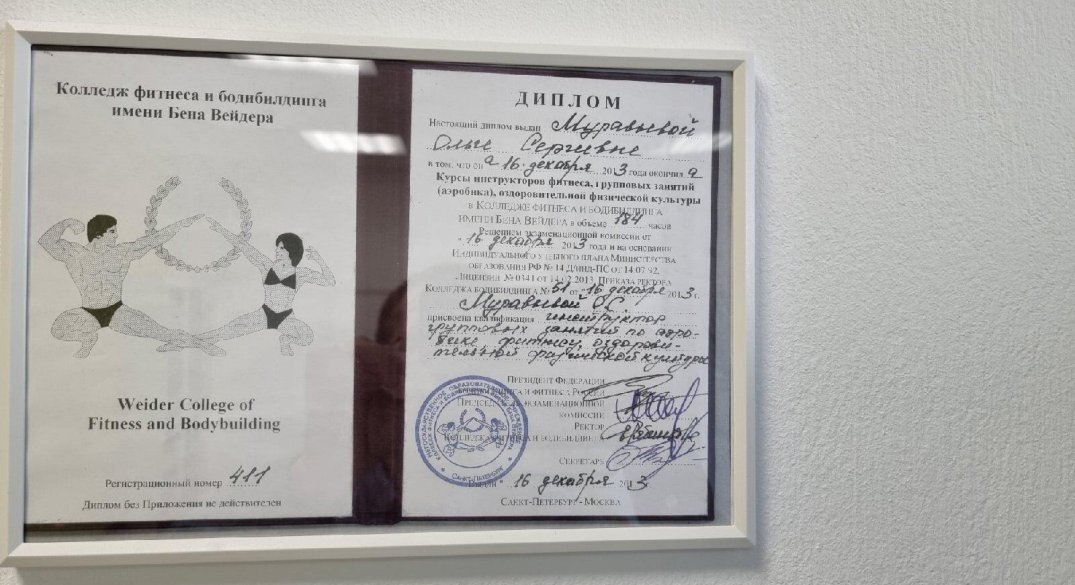 Колледж фитнеса и бодибилдинга
имени Бена Вейдера
Weider College of
Fitness and Bodybuilding
Регистрационный номер 411
Диплом без Приложения не действителен
ДИПЛОМ
Настоящий диплом выдан Муравьевой
Ольге Сергеевне
в том, что он а 16 декабря 2013 года окончил а
Курсы инструкторов фитнеса, групповых занятий
(аэробика), оздоровительной физической культуры
в Колледже фитнеса и бодибилдинга
имени Бена Вейдера в объеме 184 часов
Решением экзаменационной комиссии от
" 16 декабря 2013 года и на основании
Индивидуального учебного плана Министерства
образования РФ № 14 Д/инд-ПС от 14.07.92,
Лицензии № 0341 от 14.02.2013, Приказа ректора
Колледжа бодибилдинга № 51 от "16 декабря 2013 г.
Муравьевой О.С.
присвоена квалификация инструктор
групповых занятий по аэро-
бике фитнесу, оздорови-
тельной физической культуре
Президент Федерации
бодибилдинга и фитнеса России
Председатель экзаменационной
комиссии
Ректор
Колледжа фитнеса и бодибилдинга
Секретарь
САНКТ-ПЕТЕРБУРГ
Выдан 16 декабря 2013
Санкт-Петербург - Москва